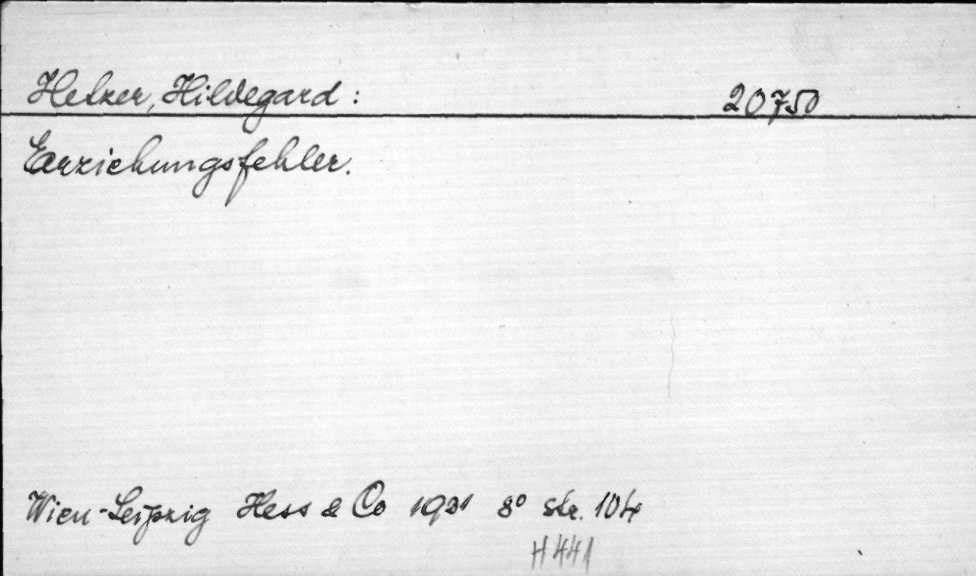 Hetzer, Hildegard: 20750
Erziehungsfehler.
Wien-Leipzig Hess & Co 1931 8° str. 104
H441